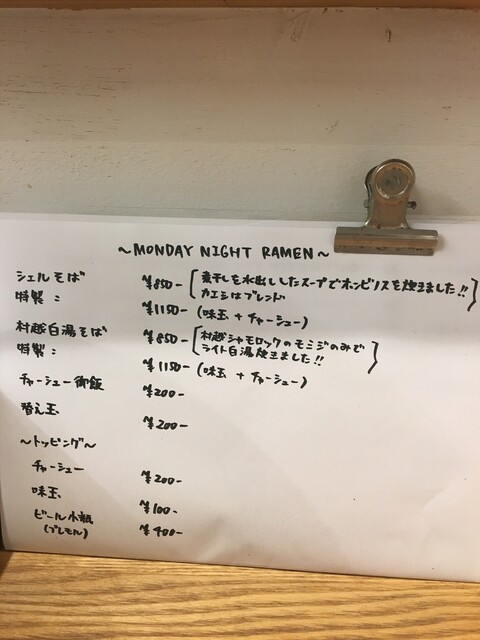 ～MONDAY NIGHT RAMEN～
シェルそば ¥850- [煮干しを水出ししたスープでホンビノスを炊きました!!
カエシはブレンド]
特製： ¥1150- (味玉+チャーシュー)
村越白湯そば ¥850- [村越シャモロックのモミジのみで
ライト白湯炊きました!!]
特製： ¥1150- (味玉+チャーシュー)
チャーシュー御飯 ¥200-
替え玉 ¥200-
～トッピング～
チャーシュー ¥200-
味玉 ¥100-
ビール小瓶 ¥400-
(プレモル)